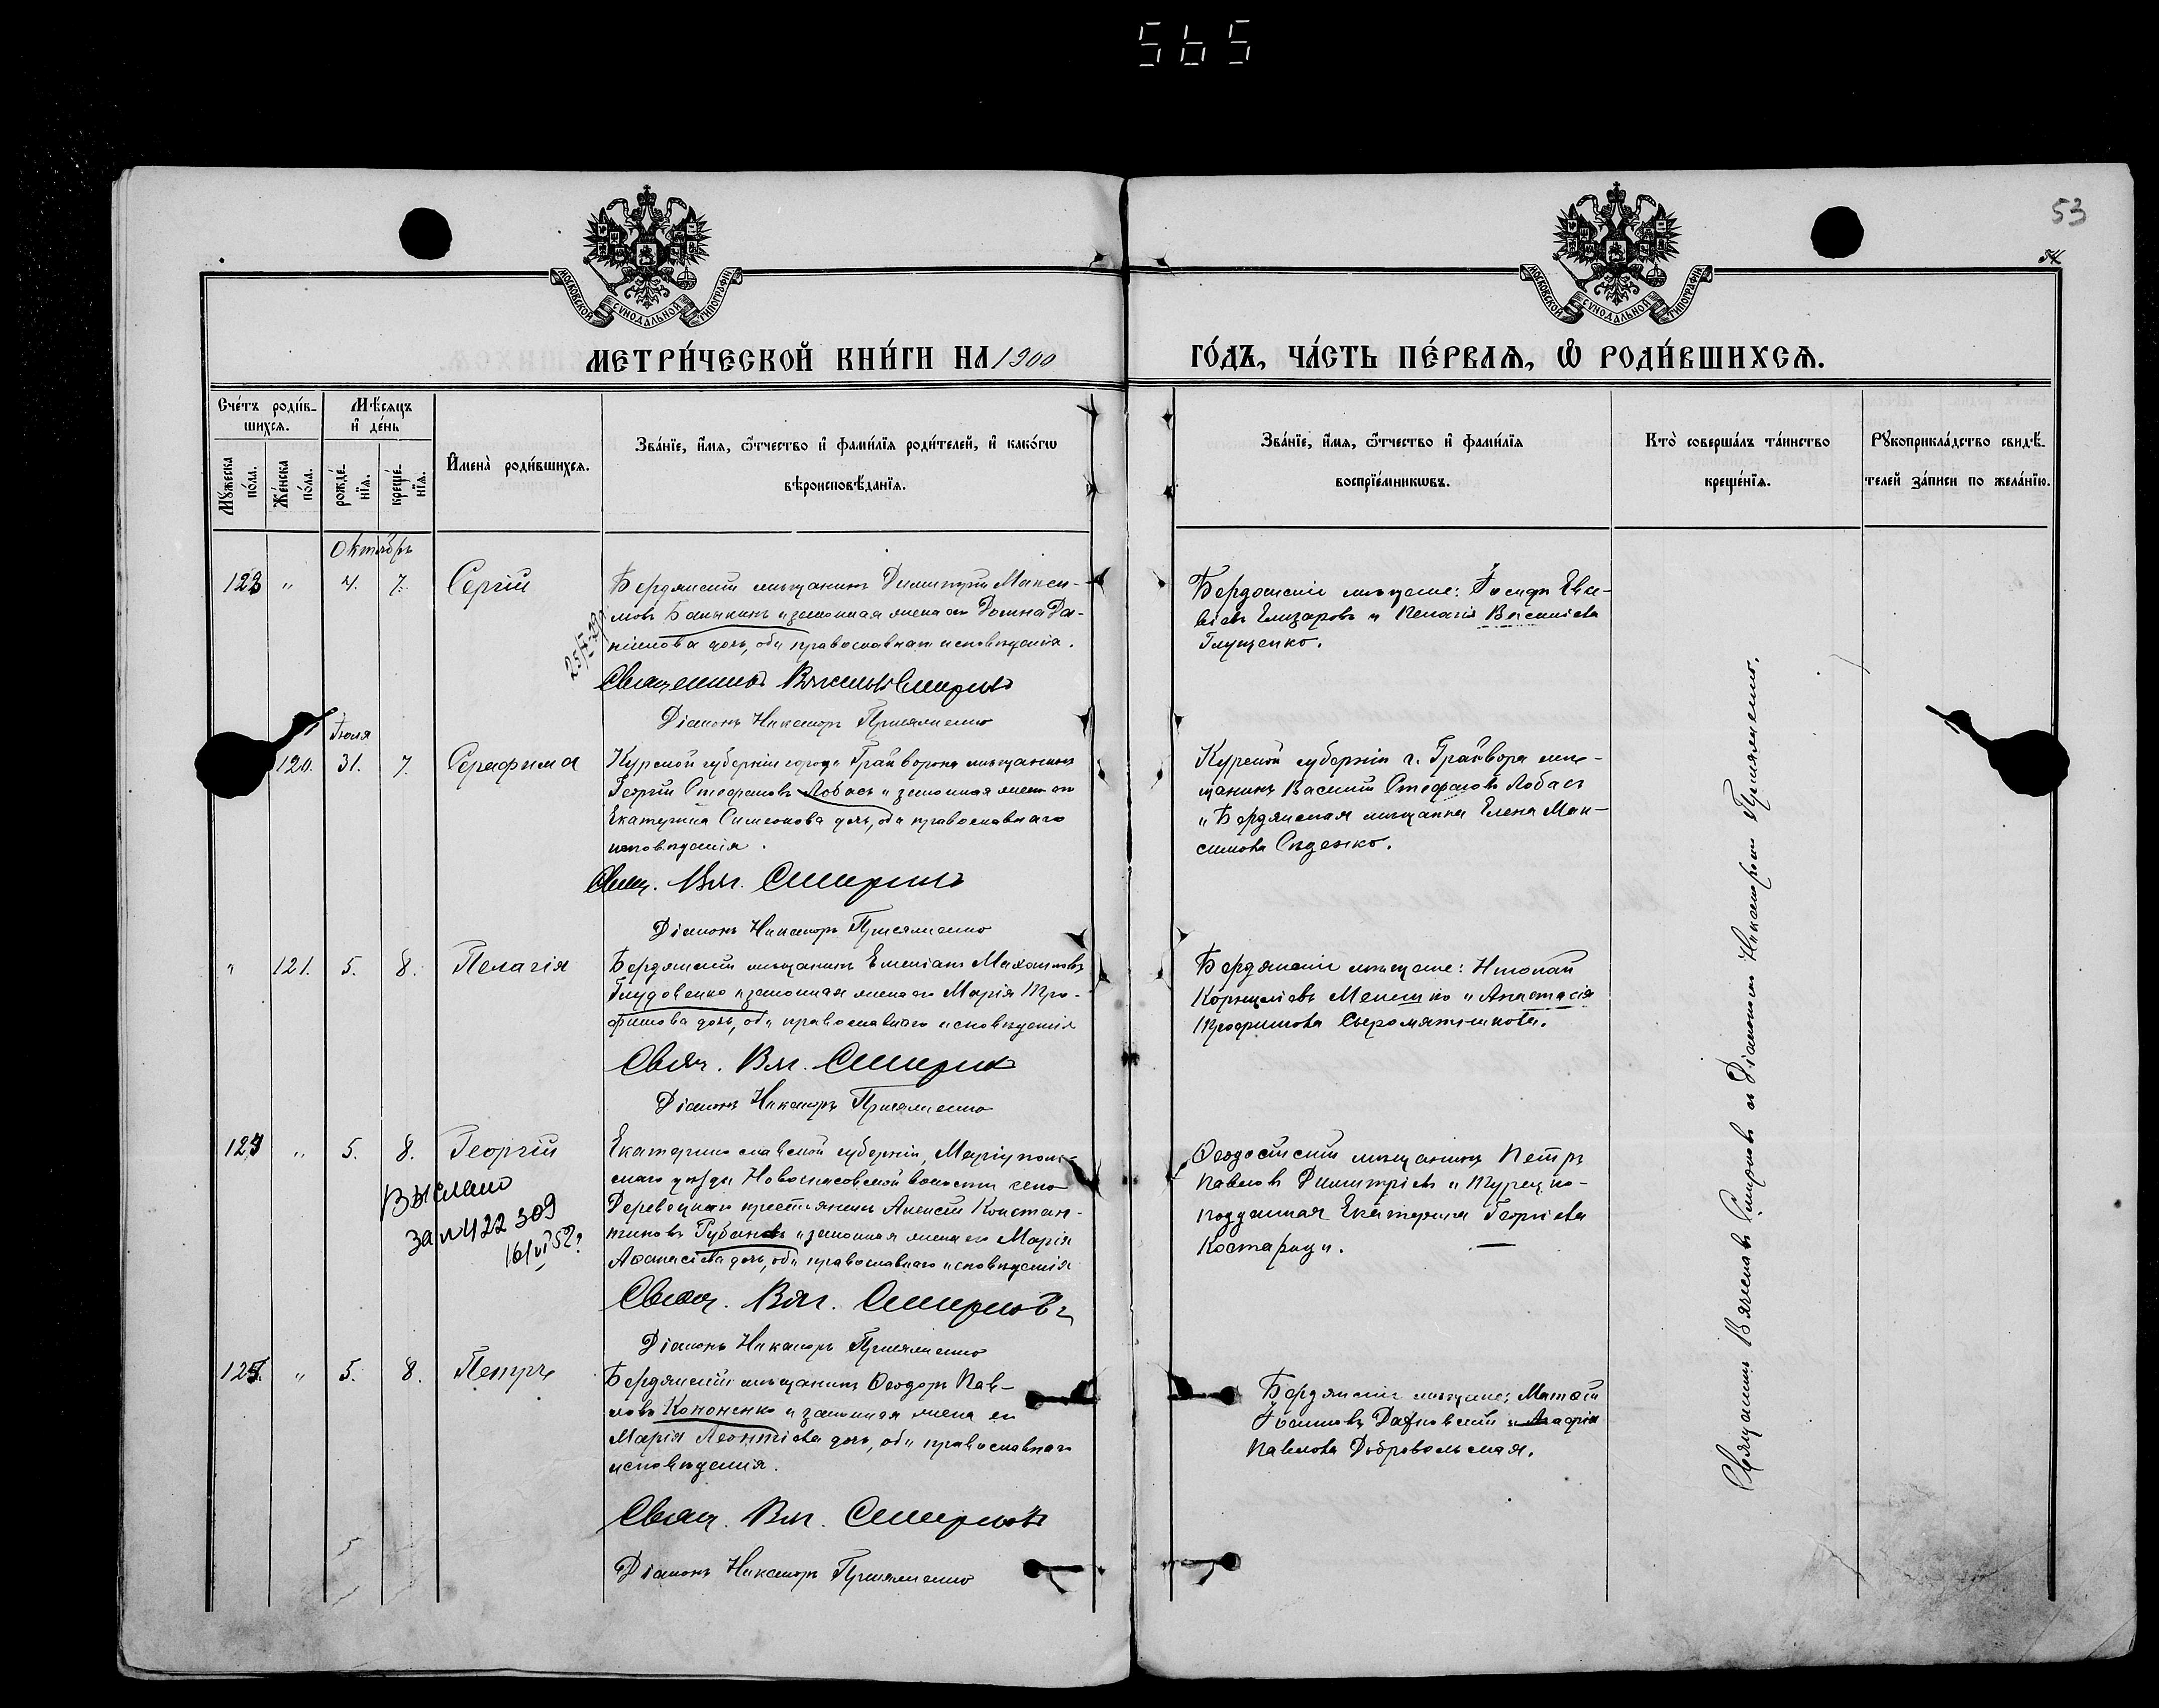 565
53
54
МОСКОВСКОЙ СѴНОДАЛЬНОЙ ТИПОГРАФІИ
МОСКОВСКОЙ СѴНОДАЛЬНОЙ ТИПОГРАФІИ
МЕТРИ́ЧЕСКОЙ КНИ́ГИ НА 1900
ГО́ДЪ, ЧА́СТЬ ПЕ́РВАѦ, Ѽ РОДИ́ВШИХСѦ.
Сче́тъ роди́в-
шихсѧ.
Мѣ́сѧцъ
и҆ де́нь
Мꙋ́жеска
по́ла.
Же́нска
по́ла.
рожде́-
нїѧ.
креще́-
нїѧ.
И҆мена̀ роди́вшихсѧ.
Зва́нїе, и҆́мѧ, ѻ҆́тчество и҆ фами́лїѧ роди́телей, и҆ како́гѡ
вѣроисповѣ́данїѧ.
Зва́нїе, и҆́мѧ, ѻ҆́тчество и҆ фами́лїѧ
воспрїе́мникѡвъ.
Кто̀ соверша́лъ та́инство
креще́нїѧ.
Рꙋкоприкла́дство свидѣ́-
телей за́писи по жела́нїю.
Октябрь
123 " 4. 7. Сергій
Бердянскій мѣщанинъ Димитрій Макси-
мовъ и законная жена его Домна Да-
ніилова дочь, оба православнаго исповѣданія.
Священникъ Вячеславъ Смирновъ
Діаконъ Никаноръ Присяжненко
Бердянскіе мѣщане: Іосифъ Евсе-
віевъ Елизаровъ и Пелагія Василіева
Глущенко.
Іюля
120. 31. 7. Серафима
Курской губерніи города Грайворона мѣщанинъ
Георгій Стефановъ Лобасъ и законная жена его
Екатерина Симеонова дочь, оба православнаго
исповѣданія.
Свящ. Вяч. Смирновъ
Діаконъ Никаноръ Присяжненко
Курской губерніи г. Грайвора мѣ-
щанинъ Василій Стефановъ Лобасъ
и Бердянская мѣщанка Елена Мак-
симова
" 121. 5. 8. Пелагія
Бердянскій мѣщанинъ Емеліанъ
Глудовенко и законная жена его Марія Тро-
фимова дочь, оба православнаго исповѣданія
Свящ. Вяч. Смирновъ
Діаконъ Никаноръ Присяжненко
Бердянскіе мѣщане: Николай
Корниліевъ Мелешко и Анастасія
Трофимова Сыромятникова.
124 " 5. 8. Георгій
Выслано
за №422309
16/VI 52
Екатеринославской губерніи, Маріуполь-
скаго уѣзда Новоспасовской волости села
Деревецкаго крестьянинъ Алексій Констан-
тиновъ Рубанъ и законная жена его Марія
Аѳанасіева дочь, оба православнаго исповѣданія
Свящ. Вяч. Смирновъ
Діаконъ Никаноръ Присяжненко
Ѳеодосійскій мѣщанинъ Петръ
Павловъ Димитріевъ и Турецко-
подданная Екатерина Георгіева
Костариди.
125. " 5. 8. Петръ
Бердянскій мѣщанинъ Ѳеодоръ Пав-
ловъ Кононенко и законная жена его
Марія Леонтіева дочь, оба православнаго
исповѣданія.
Свящ. Вяч. Смирновъ
Діаконъ Никаноръ Присяжненко
Бердянскіе мѣщане: Матѳій
Іоанновъ и Агафія
Павлова Добровольская.
Священникъ Вячеславъ Смирновъ съ Діакономъ Никаноромъ Присяжненко.